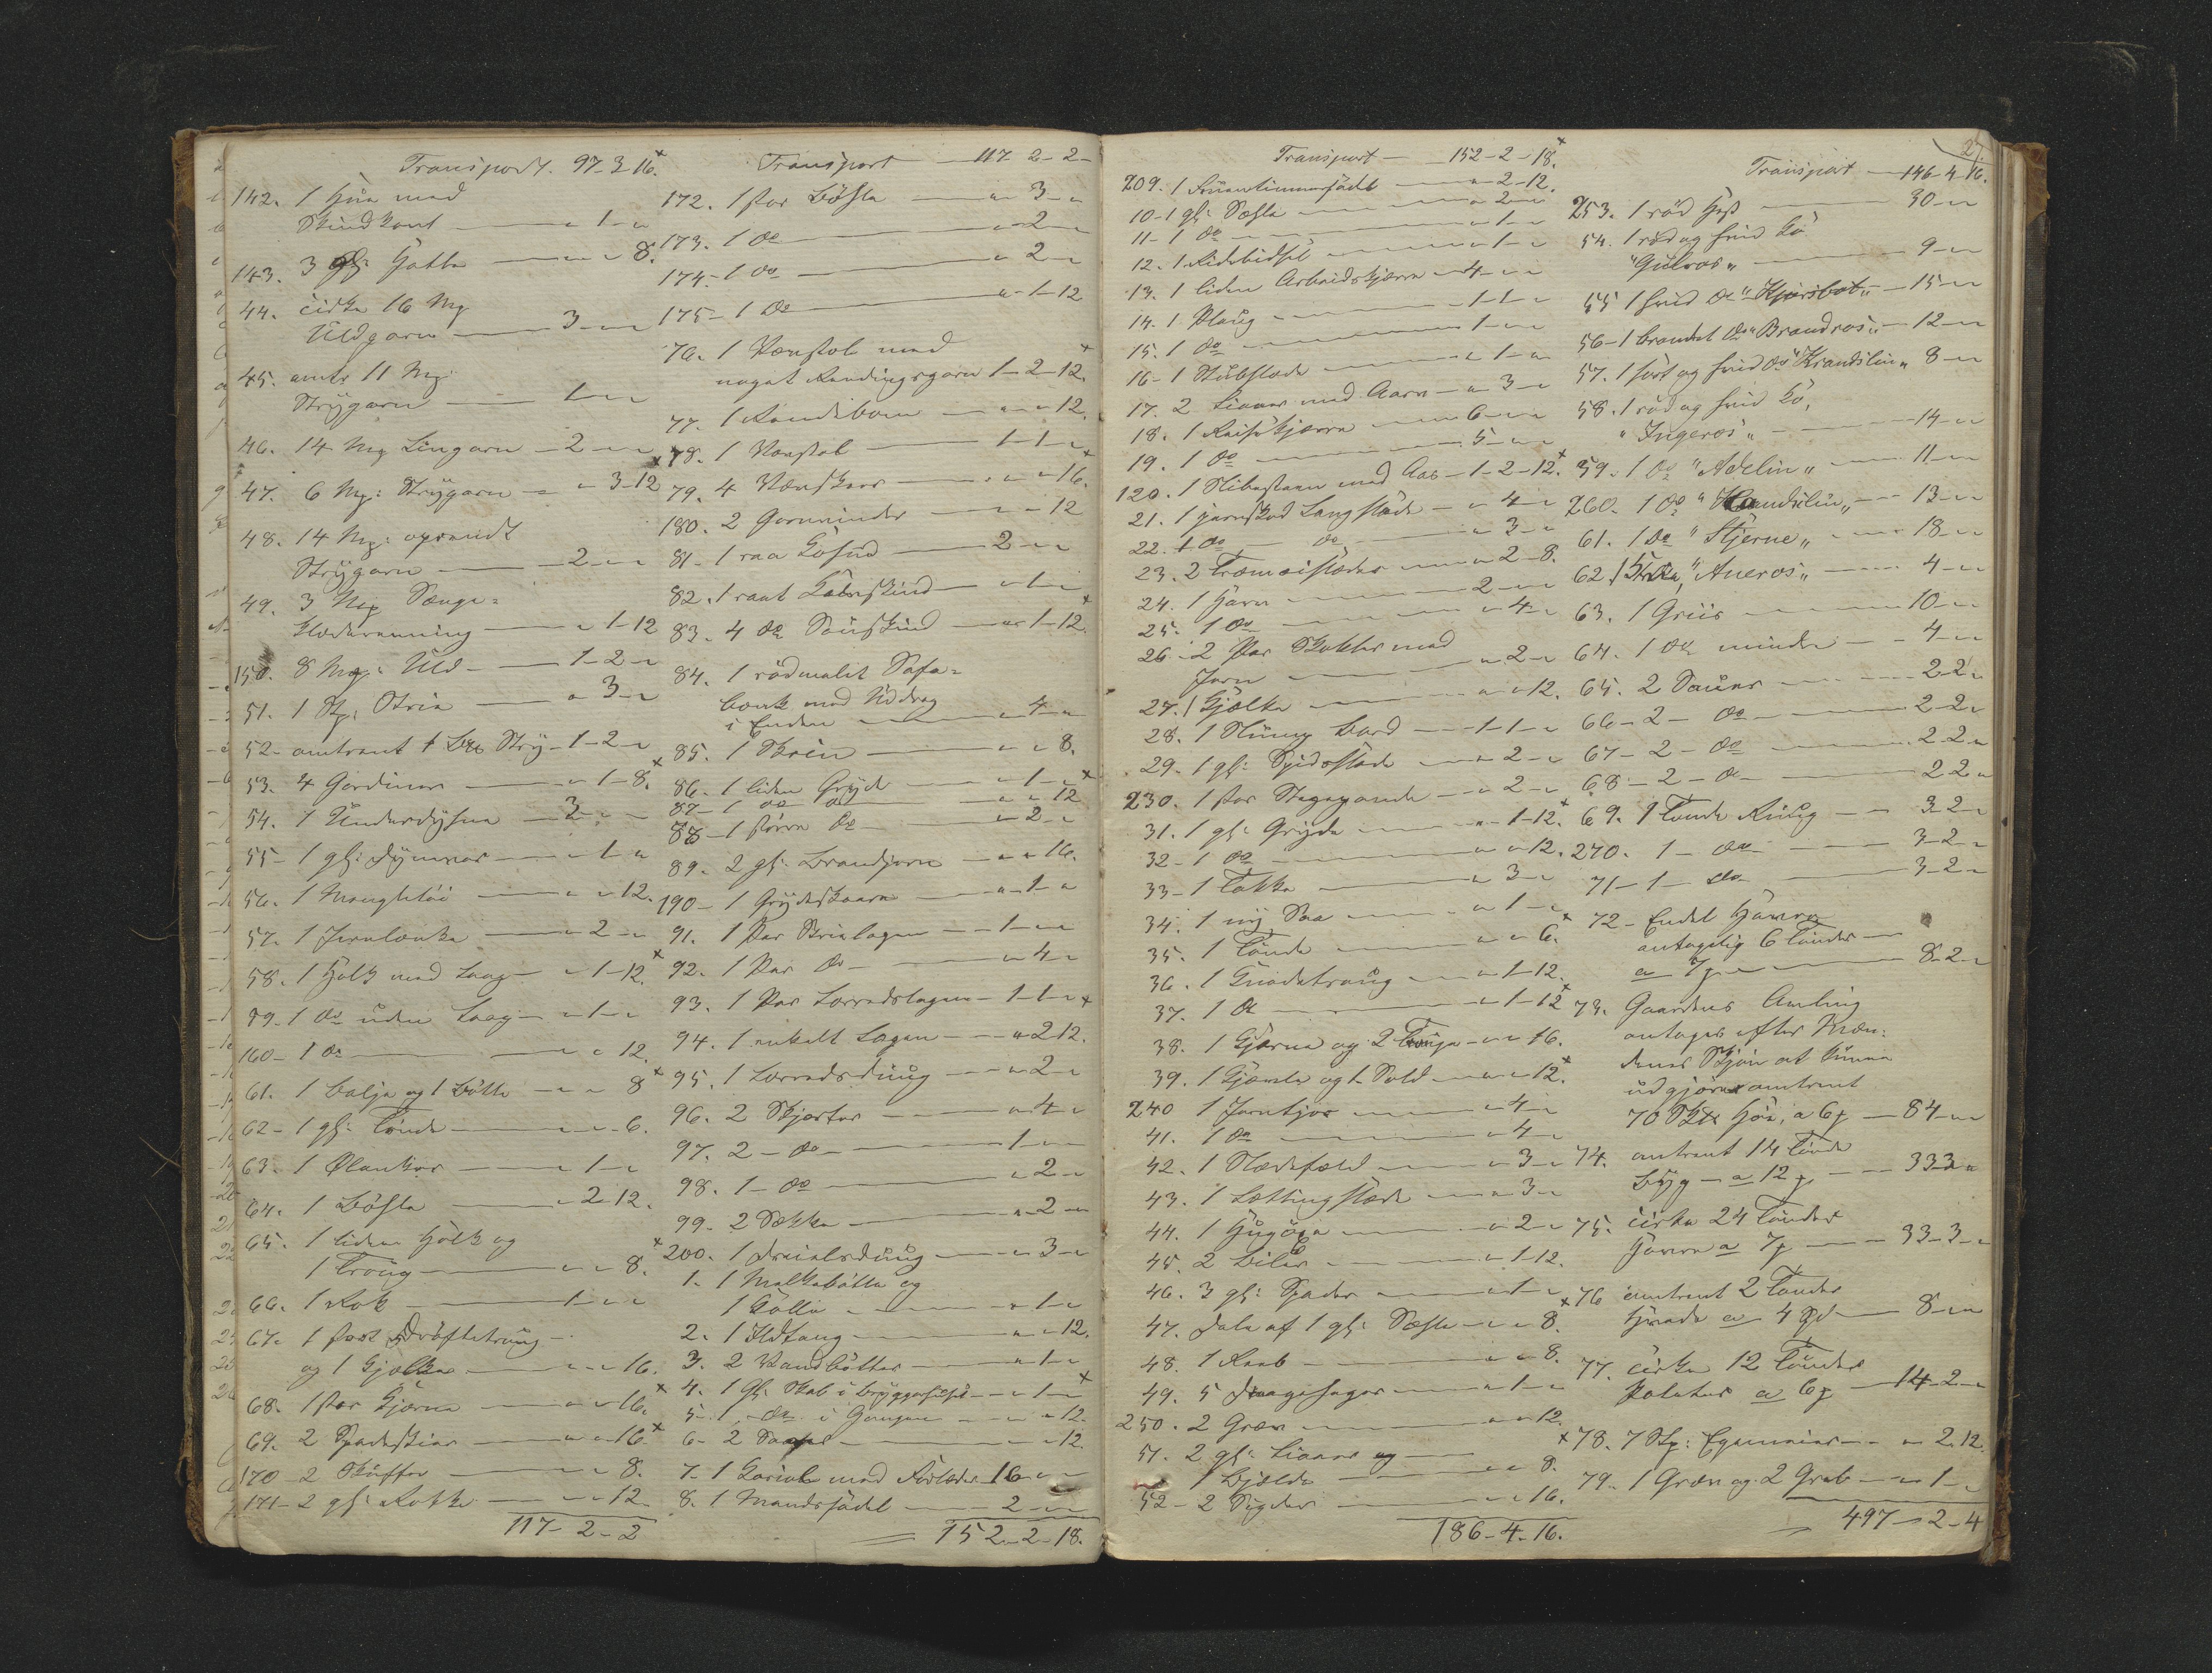 Transport. 97-3-16.
142. 1 Hue med
Skindkant — " 1 - "
143. 3 gl: Hatte — " - " 8.
44. cirka 16 Mrk
Uldgarn — 3 - " - "
45. omtr 11 Mrk.
Strygarn — 1 - " - "
46. 14 Mrk Lingarn — 2 - " - "
47. 6 Mrk: Strygarn — " 3-12
48. 14 Mrk: oprendt
Strygarn — 2 - " - "
49. 3 Mrk Senge-
klæderenning — " 1-12
150. 8 Mrk: Uld — 1-2-"
51. 1 St. Strie — " 3 - "
52. omtrent 1 Strý - 1-2-"
53. 4 Gardiner — " 1-8.
54. 1 Underdyne — 3 - " - "
55. 1 gl: Dynevar — " 1 - "
56. 1 Mangletøi — " - " 12.
57. 1 Jernlænke — " 2 - "
58. 1 Holk med Laag — " 1-12.
59. 1 do uden Laag — " 1 - "
160. 1 do — " " 12.
61. 1 balje og 1 Bøtte — " " 8
62. 1 gl: Tønde — " - " 6.
63. 1 Ølanker — " 1 - "
64. 1 Bøsse — " 2-12.
65. 1 liden Holk og
1 Troug — " - " 8.
66. 1 Rok — 1 - " - "
67. 1 stort Drøftetroug
og 1 Kjelke — " - " 16.
68. 1 stor Kjerne — " - " 16.
69. 2 Spadeskier — " - " 16.
170. 2 Skuffer — " - " 8.
171. 2 gl: Rokke — " - " 12.
117-2-2
Transport — 117-2-2-
172. 1 stor Bøsse — " 3 - "
173. 1 do — " 2 - "
174. 1 do — " 2 - "
175. 1 do — " 1-12
76. 1 Vævstol med
noget Rendingsgarn 1-2-12.
77. 1 Rendebom — " - " 12.
78. 1 Vævstol — 1-1-"
79. 4 Vævskeer — " - " 16.
180. 2 Garnvinder — " - " 12
81. 1 raa Kohud — 2 - " - "
82. 1 raat Kalveskind — " 1 - "
83. 4 do Saueskind — " 1-12.
84. 1 rødmalet Sofa-
bænk med Uddrag
i Enden — " 4 - "
85. 1 Skrin — " " 8.
86. 1 liden Gryde — " 1 - "
87. 1 do do — " " 12
88. 1 større do — " 2 - "
89. 2 gl: Brandjern — " " 16.
190. 1 Grydeskaare — " 1 - "
91. 1 Par Strielagen — 1 - " - "
92. 1 Par do — " 4 - "
93. 1 Par Lærredslagen — 1-1-"
94. 1 enkelt Lagen — " 2-12.
95. 1 Lærredsdúúg — " 2 - "
96. 2 Skjorter — " 4 - "
97. 2 - do — 1 - " - "
98. 1 - do — " 2 - "
99. 2 Sække — " 2 - "
200. 1 Dreielsdúúg — " 3 - "
1. 1 Melkebøtte og
1 Kolle — " 1 - "
2. 1 Ildtang — " - " 12.
3. 2 Vandbøtter — " 1 - "
4. 1 gl: Skab i bryggerhuset — " 1 - "
5. 1 - do i Gangen — " - " 12.
6. 2 — " - " 12
7. 1 Kariol med Forlæder 16 - " - "
8. 1 Mandssadel — 2 - " - "
152-2-18.
Transport — 152-2-18.
209. 1 Fruentimmersadel — " 2-12.
10. 1 gl: Sæle — " 2 - "
11. 1 do — " 1 - "
12. 1 Ridebidsel — " 1 - "
13. 1 liden Arbeidskjærre — 4 - " - "
14. 1 Ploug — 1-1-"
15. 1 do — 1 - " - "
16. 1 Stubslæde — " 1 - "
17. 2 Liaaer med Aarv — " 3 - "
18. 1 Reisekjærre — 6 - " - "
19. 1 do — 5 - " - "
120. 1 Slibesteen med Aas — 1-2-12.
21. 1 jernskod Langslæde — " 4 - "
22. 1 do do — " 3 - "
23. 2 Træmeislæder — " 2-8.
24. 1 Harv — 2 - " - "
25. 1 do — " 4 - "
26. 2 Par Skokler med
Jern — " 2 - "
27. 1 Kjelke — " - " 12.
28. 1 Slúúng Bord — 1-1-"
29. 1 gl: Spidsslæde — " 2 - "
230. 1 stor Stegepande — " 2 - "
31. 1 gl: Gryde — " 1-12.
32. 1 do — " " 12.
33. 1 Takke — " 3 - "
34. 1 ny Saa — " 1 - "
35. 1 Tønde — " " 6.
36. 1 Gnodetroug — " 1-12.
37. 1 do — " 1-12
38. 1 Kjerne og 2 — " " 16.
39. 1 og 1 Sold — " " 12.
240. 1 Jerntjor — " 4 - "
41. 1 do — " 4 - "
42. 1 Slædefæld — " 3 - "
43. 1 Lettingslæde — " 3 - "
44. 1 Hugøxe — " 2 - "
45. 2 Biler — " 1-12.
46. 3 gl: Spader — " 1 - "
47. Dele af 1 gl: Sæle — " " 8.
48. 1 Reeb — " " 8.
49. 5 — " 1 - "
250. 2 Grev — " " 12.
51. 2 gl: Liaaer og
1 Bjelde — " " 8.
52. 2 Sigder — " " 16.
186-4-16.
27
Transport — 186-4-16.
253. 1 rød Hest — 30 - " - "
54. 1 rød og hvid Ko
"Gulros" — 9 - " - "
55. 1 hvid do "Hjersbot" — 15 - " - "
56. 1 brandet do "Brandros" — 12 - " - "
57. 1 sort og hvid do "Krandslin" 8 - " - "
58. 1 rød og hvid Ko,
"Ingeros" — 14 - " - "
59. 1 do "Adelin" — 11 - " - "
260. 1 do — 13 - " - "
61. 1 do "Stjerne" — 18 - " - "
62. 1 Kvie, "Aneros" — 4 - " - "
63. 1 Griis — 10 - " - "
64. 1 do mindre — 4 - " - "
65. 2 Sauer — 2-2-"
66. 2 - do — 2-2-"
67. 2 - do — 2-2-"
68. 2 - do — 2-2-"
69. 1 Tønde Rúúg — 3-2-"
270. 1 - do — 3-2-"
71. 1 - do — 3-2-"
72. Endel Havre
antagelig 6 Tønder
a 7 — 8-2-"
73. Gaardens Avling
antages efter Mæn-
denes Skjøn at kunne
udgjøre omtrent
70 Høe, a 6 — 84 - " - "
74. omtrent 14 Tønde
Byg a 12 — 33-3-"
75. cirka 24 Tønder
Havre a 7 — 33-3-"
76 omtrent 2 Tønder
Hvede a 4 Spd — 8 - " - "
77. cirka 12 Tønder
Poteter a 6 — 14-2-"
78. 7 St: — " 2.12.
79. 1 Grev og 2 Greb — " 1 - "
497-2-4